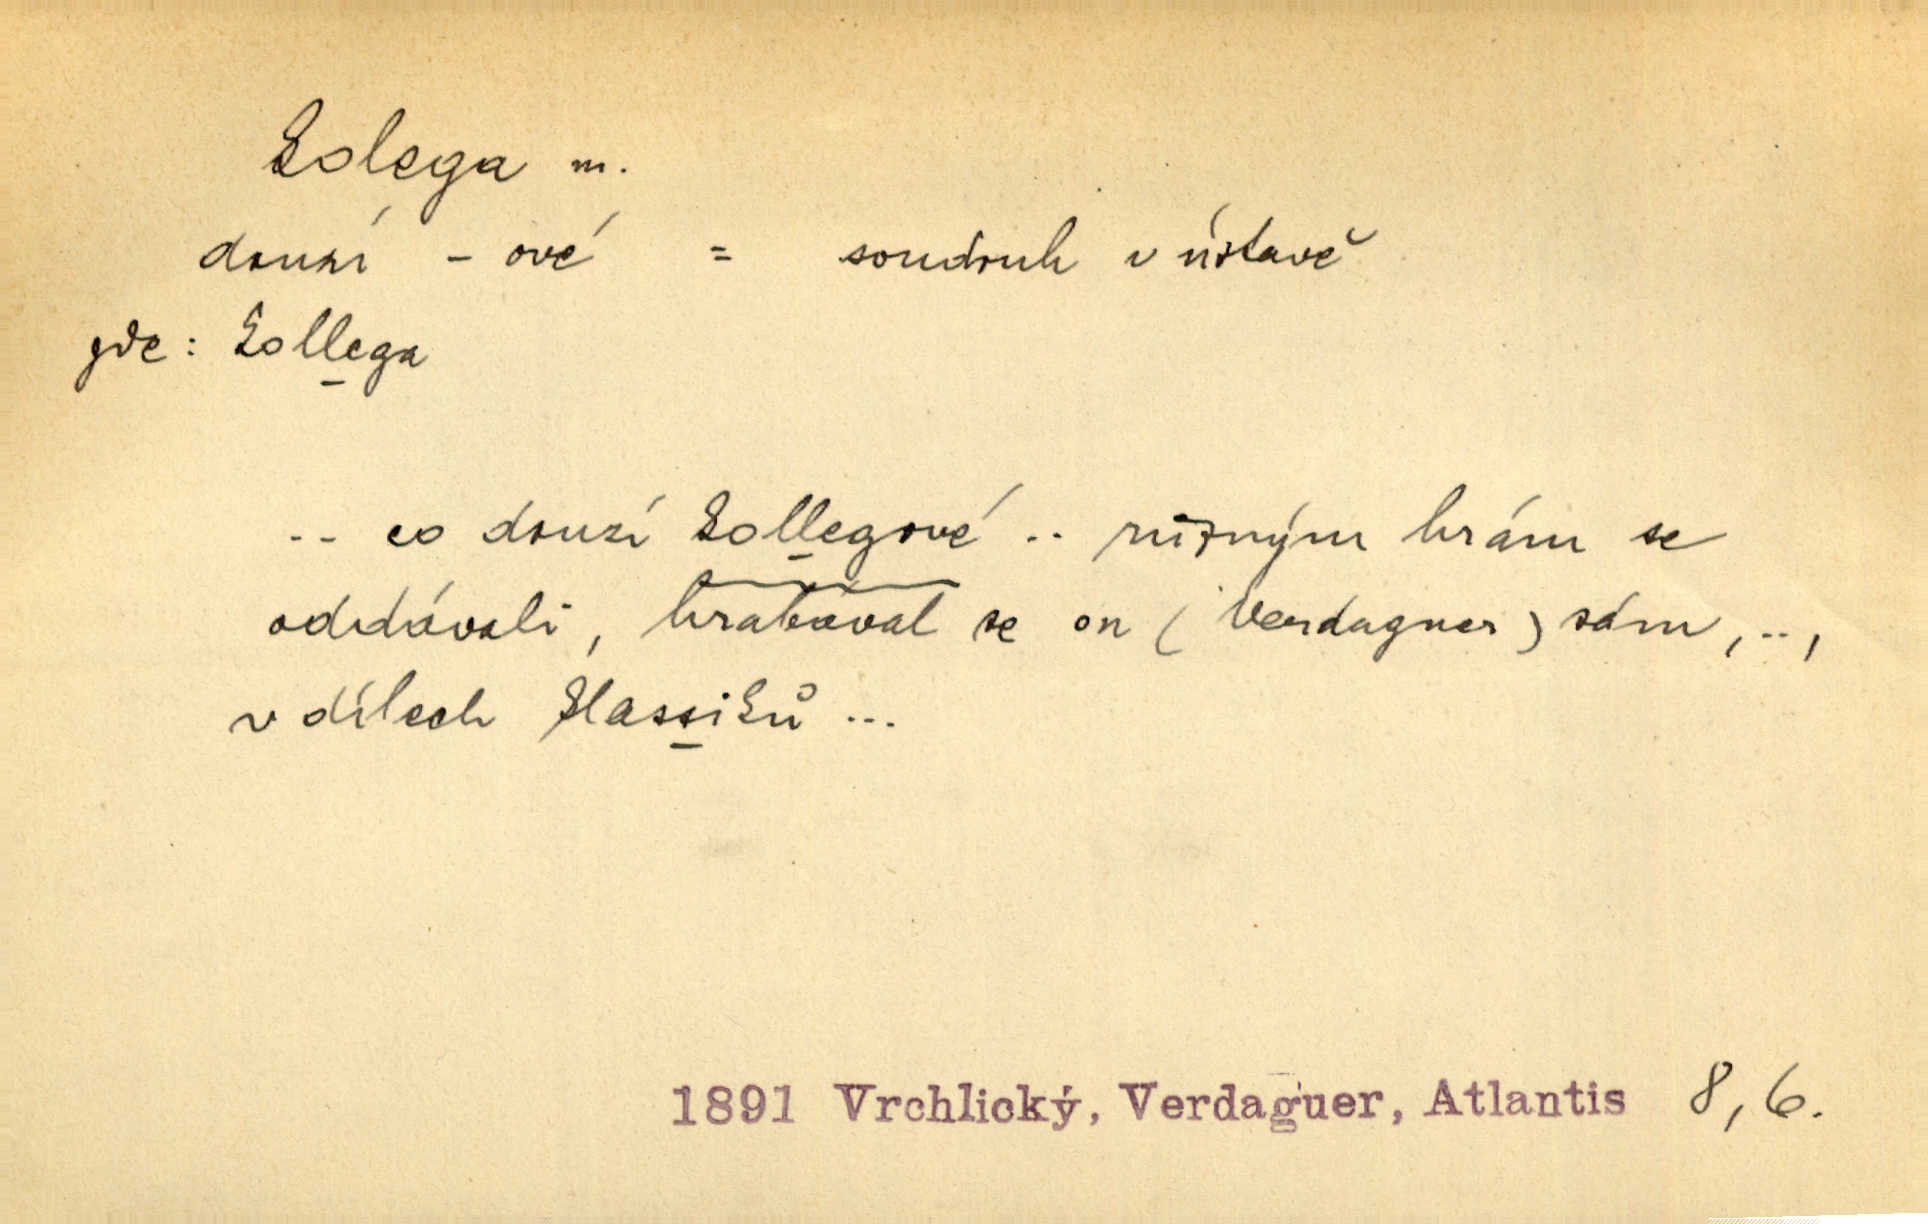 kolega m.
druzí - ové = soudruh v ústavě
gde: kollega
-- co druzí kollegové .. různým hrám se
oddávali, hrabával se on (Verdaguer) sám, ..,
v dílech klassiků ...
1891 Vrchlický, Verdaguer, Atlantis 8, 6.